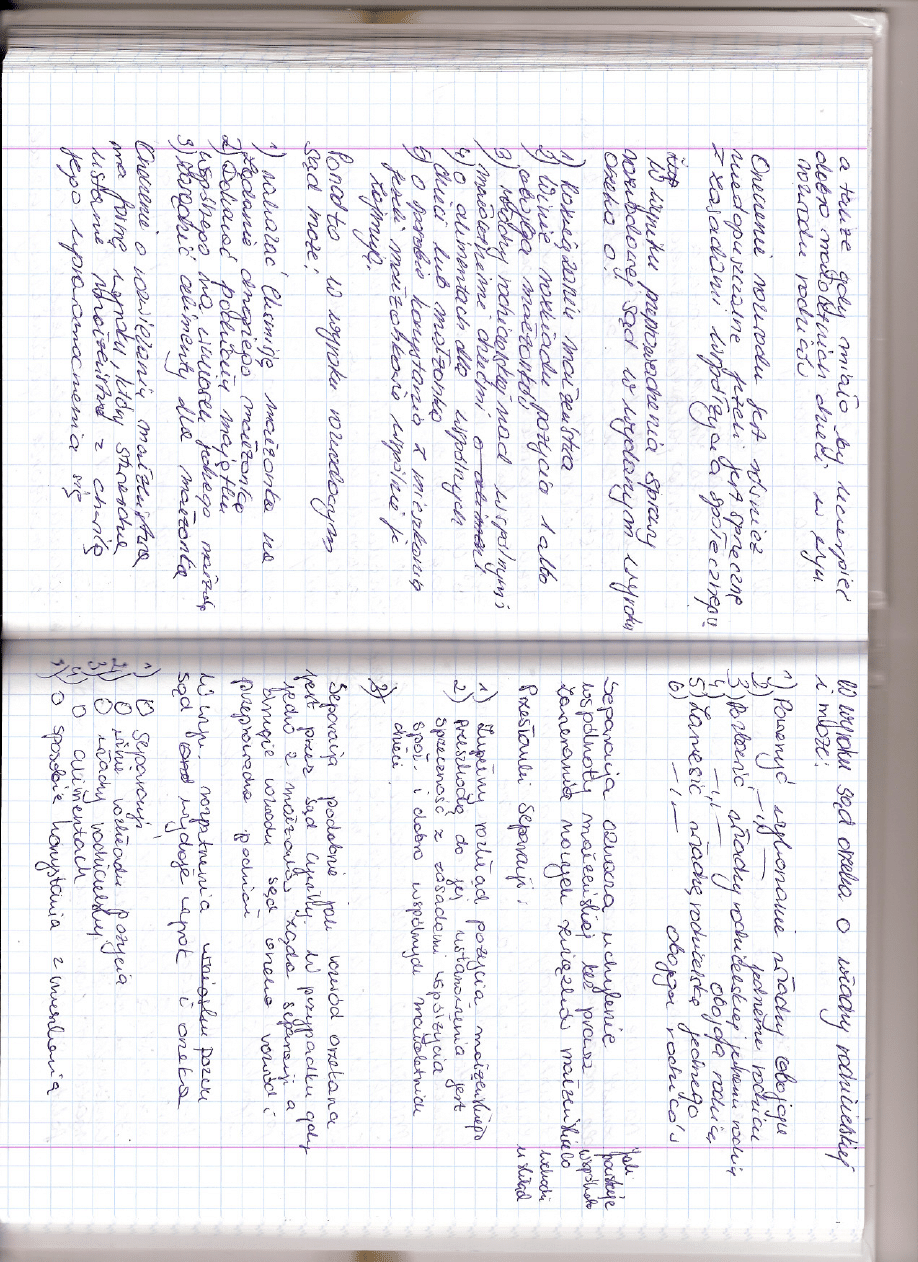 a także gdy miało by ucierpieć
dobro małoletnich dzieci w wyn.
rozwodu rodziców
Orzeczenie rozwodu jest również
niedopuszczalne jeżeli jest sprzeczne
z zasadami współżycia społecznego
W wyniku przeprowadzenia sprawy
rozwodowej Sąd w wydanym wyroku
orzeka o:
1) Rozwiązaniu małżeństwa
2) Winie rozkładu pożycia 1 albo
obojga małżonków
3) władzy rodzicielskiej nad wspólnymi
małoletnimi dziećmi
4) o alimentach dla wspólnych
dzieci lub małżonka
5) o sposobie korzystania z mieszkania
jeżeli małżonkowie wspólnie je
zajmują.
Ponadto w wyroku rozwodowym
Sąd może:
1) nakazać Eksmisję małżonka na
żądanie drugiego małżonka
2) Dokonać podziału majątku
wspólnego na wniosek jednego małżonka
3) Zasądzić alimenty dla małżonka
Orzeczenie o rozwiązaniu małżeństwa
ma formę wyroku, który stanowi
ustanie małżeństwa z chwilą
jego uprawomocnienia się
W wyroku sąd orzeka o władzy rodzicielskiej
i może:
1) Powierzyć wykonanie władzy obojgu
2) —,,— jednemu rodzicu
3) Pozbawić władzy rodzicielskiej jednemu rodzica
4) —,,— obojga rodziców
5) Zawiesić władzę rodzicielską jednego
6) —,,— obojga rodziców
Separacja oznacza uchylenie
wspólnoty małżeńskiej bez prawa
zawierania nowych związków małżeńskich
Przesłanki Separacji:
1) Zupełny rozkład pożycia małżeńskiego
2) przeszkodą do jej ustanowienia jest
sprzeczność z zasadami współżycia
społ. i dobro wspólnych małoletnich
dzieci.
3)
Separacja podobnie jak rozwód orzekana
jest przez sąd cywilny. W przypadku gdy
jedno z małżonków żąda separacji a
drugie rozwodu sąd orzeka rozwód i
przeprowadza podział
W wyn. rozpatrzenia wniosku pozwu
sąd wydaje wyrok i orzeka
1) O Separacji
2) O winie rozkładu pożycia
3) O władzy rodzicielskiej
4) O alimentach
5) O sposobie korzystania z mieszkania